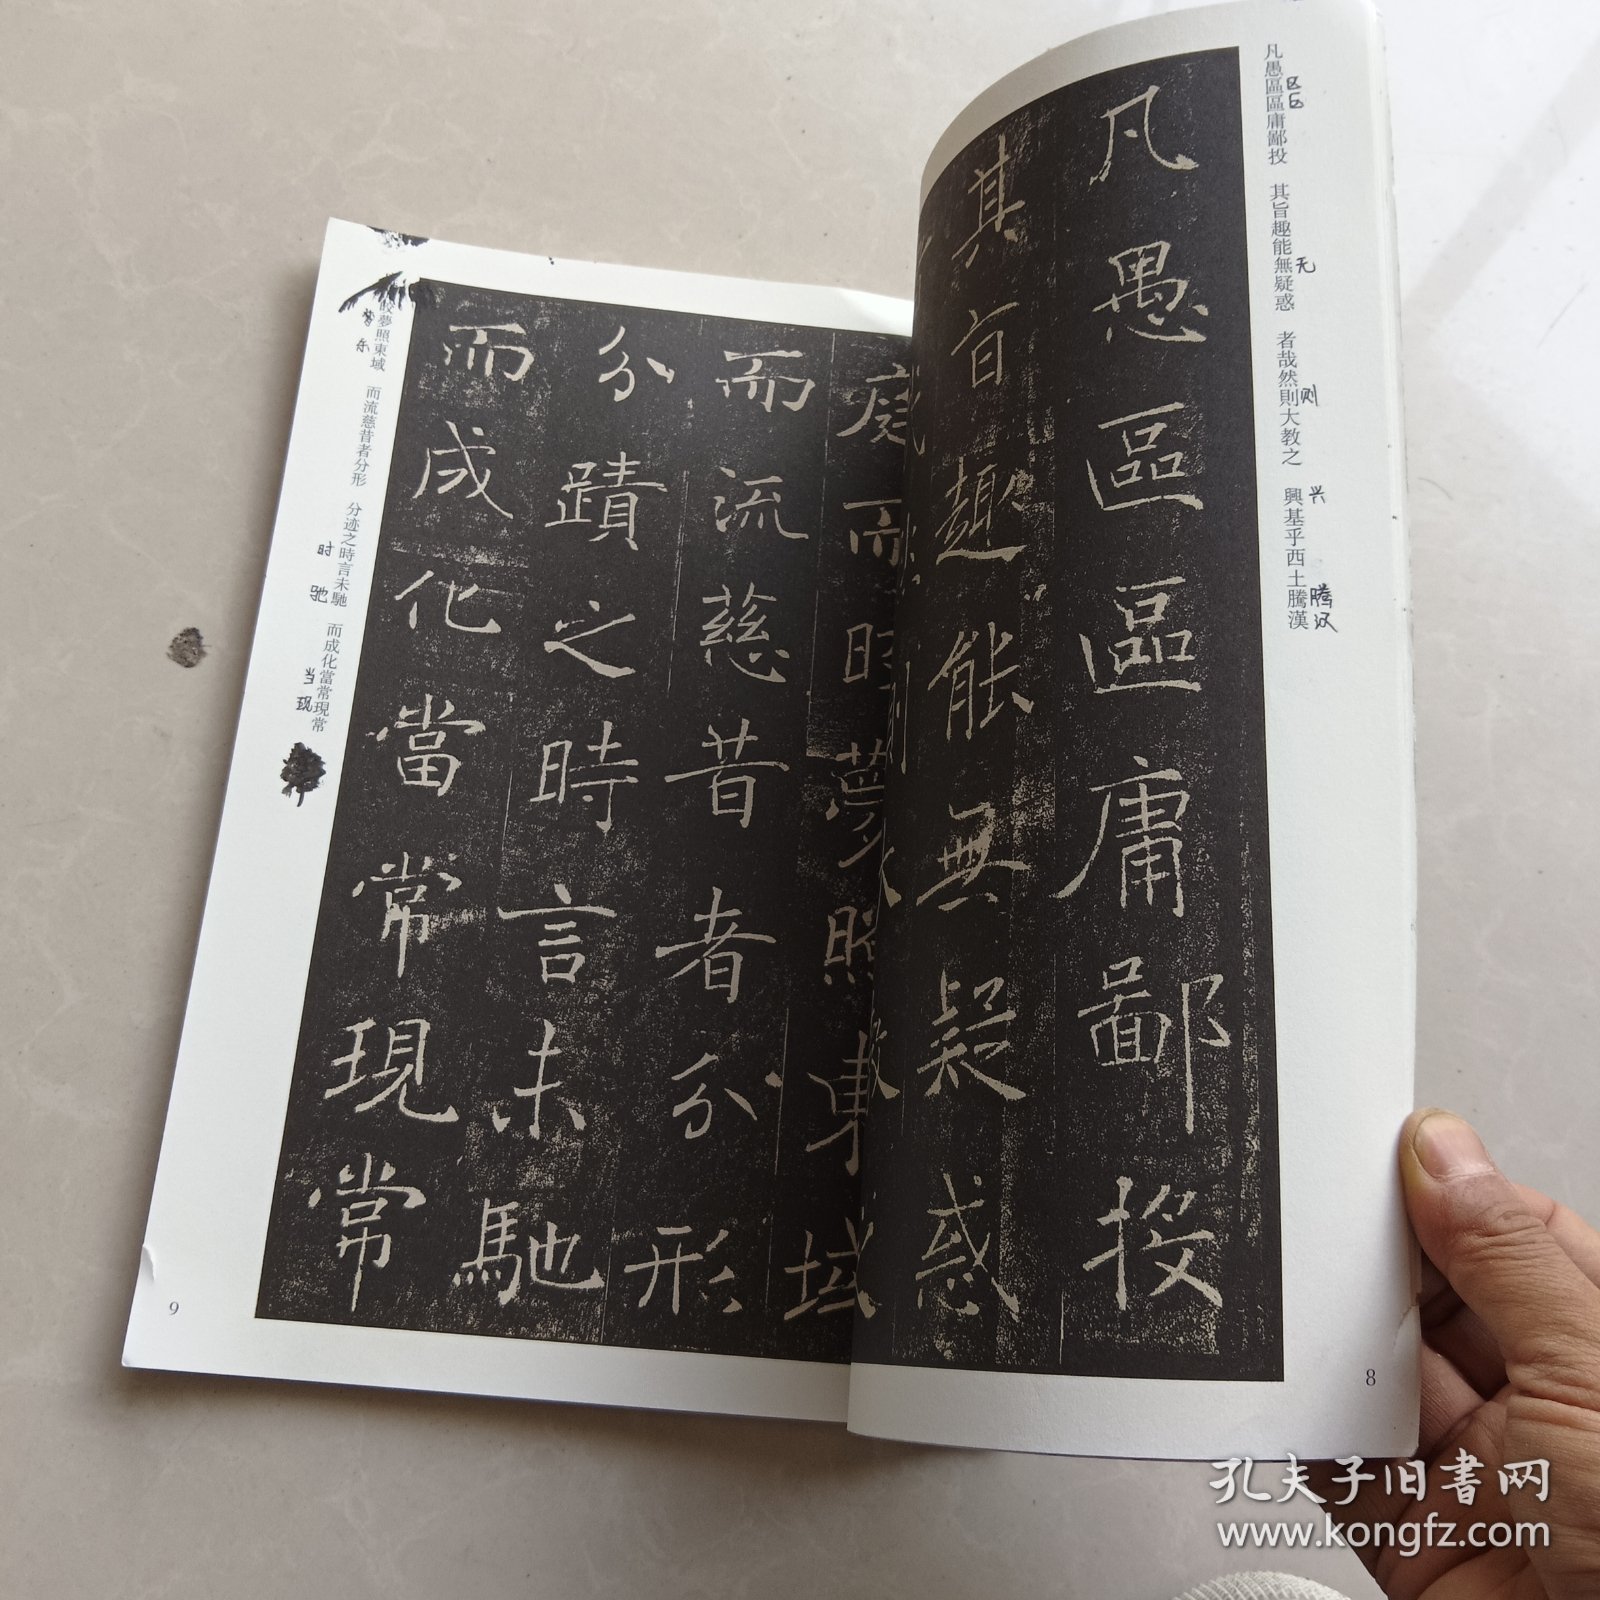 凡愚區區庸鄙投　其旨趣能無疑惑　者哉然則大教之　興基乎西土騰漢
区区
无
则
兴
腾汉
凡愚區區庸鄙投
其旨趣能無疑惑
8
皎夢照東域　而流慈昔者分形　分迹之時言未馳　而成化當常現常
东
时
驰
当
现
庭而
時夢照東域
而流慈昔者分形
分蹟之時言未馳
而成化當常現常
9
孔夫子旧书网
www.kongfz.com